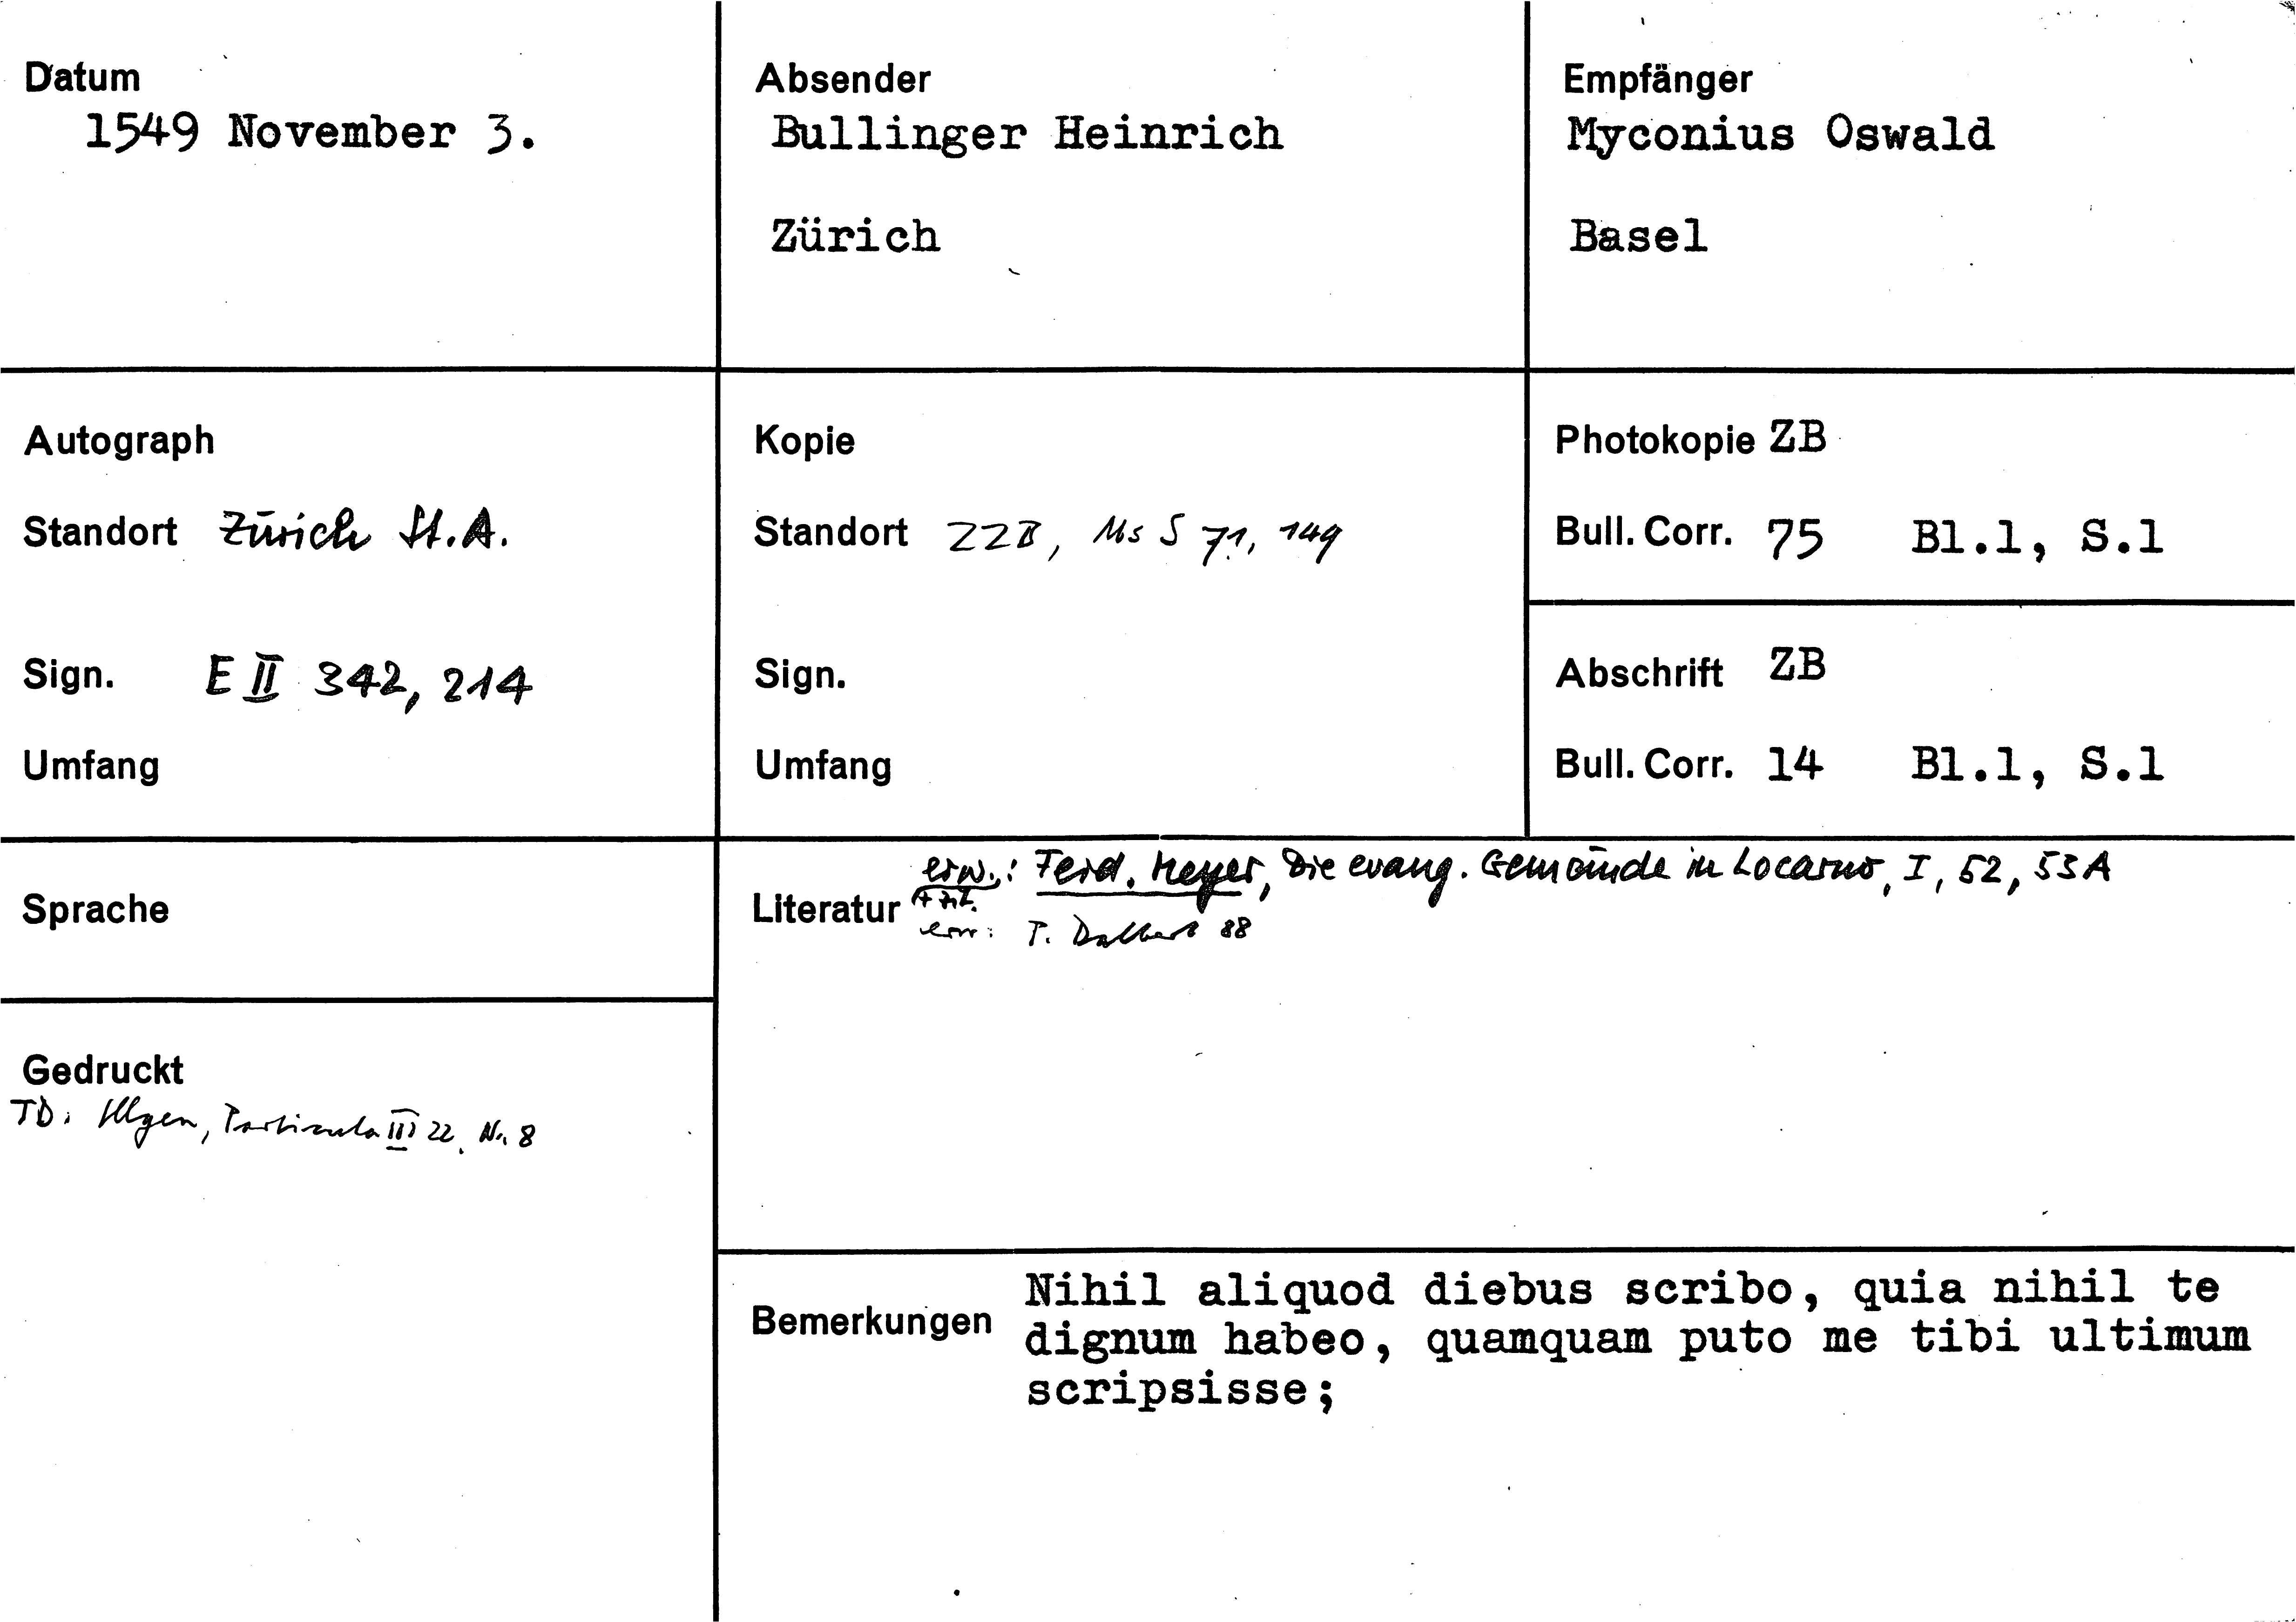 Datum
1549 November 3.
Absender
Bullinger Heinrich
Zürich
Empfänger
Myconius Oswald
Basel
Autograph
Standort Zürich St.A.
Sign. E II 342, 214
Umfang
Kopie
Standort ZZB, Ms S 71, 149
Sign.
Umfang
Photokopie ZB
Bull. Corr. 75 Bl.1, S.1
Abschrift ZB
Bull. Corr. 14 Bl.1, S.1
Sprache
Gedruckt
TD: Illgen, Particula III 22, Nr. 8
erw.: Ferd. Meyer, Die evang. Gemeinde in Locarno, I, 52, 53 A
Literatur + zit.
erw: T. Dalbert 88
Bemerkungen
Nihil aliquod diebus scribo, quia nihil te
dignum habeo, quamquam puto me tibi ultimum
scripsisse;